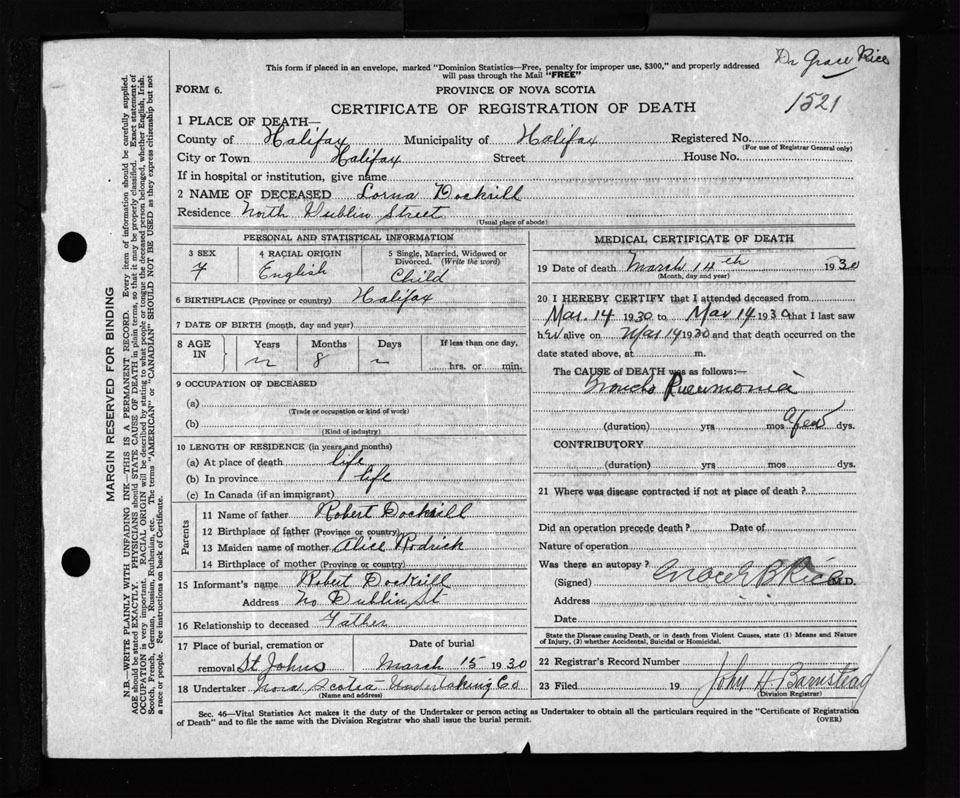 Dr Grace Rice
1521
This form if placed in an envelope, marked "Dominion Statistics—Free, penalty for improper use, $300," and properly addressed
will pass through the Mail "FREE"
FORM 6.
PROVINCE OF NOVA SCOTIA
CERTIFICATE OF REGISTRATION OF DEATH
1 PLACE OF DEATH—
County of Halifax Municipality of Halifax Registered No.
(For use of Registrar General only)
City or Town Halifax Street House No.
If in hospital or institution, give name
2 NAME OF DECEASED Lorna Dockrill
Residence North Dublin Street
(Usual place of abode)
PERSONAL AND STATISTICAL INFORMATION
3 SEX 4 RACIAL ORIGIN 5 Single, Married, Widowed or Divorced. (Write the word)
F English Child
6 BIRTHPLACE (Province or country) Halifax
7 DATE OF BIRTH (month, day and year)
8 AGE IN Years Months Days If less than one day,
8 hrs. or min.
9 OCCUPATION OF DECEASED
(a)
(Trade or occupation or kind of work)
(b)
(Kind of industry)
10 LENGTH OF RESIDENCE (in years and months)
(a) At place of death life
(b) In province life
(c) In Canada (if an immigrant)
Parents
11 Name of father Robert Dockrill
12 Birthplace of father (Province or country)
13 Maiden name of mother Alice Rodrick
14 Birthplace of mother (Province or country)
15 Informant's name Robert Dockrill
Address No Dublin St
16 Relationship to deceased Father
17 Place of burial, cremation or Date of burial
removal St Johns March 15 1930
18 Undertaker Nova Scotia Undertaking Co
(Name and address)
MEDICAL CERTIFICATE OF DEATH
19 Date of death March 14th 1930
(Month, day and year)
20 I HEREBY CERTIFY that I attended deceased from
Mar. 14 1930 to Mar 14 1930 that I last saw
her alive on Mar 14 1930 and that death occurred on the
date stated above, at m.
The CAUSE of DEATH was as follows:—
Broncho Pneumonia
(duration) yrs mos a few dys.
CONTRIBUTORY
(duration) yrs mos dys.
21 Where was disease contracted if not at place of death?
Did an operation precede death? Date of
Nature of operation
Was there an autopsy?
(Signed) Grace B Rice M.D.
Address
Date
State the Disease causing Death, or in death from Violent Causes, state (1) Means and Nature
of Injury, (2) whether Accidental, Suicidal or Homicidal.
22 Registrar's Record Number
23 Filed 19 John H Barnstead
(Division Registrar)
Sec. 46—Vital Statistics Act makes it the duty of the Undertaker or person acting as Undertaker to obtain all the particulars required in the "Certificate of Registration
of Death" and to file the same with the Division Registrar who shall issue the burial permit.
(OVER)
MARGIN RESERVED FOR BINDING
N.B.—WRITE PLAINLY WITH UNFADING INK—THIS IS A PERMANENT RECORD. Every item of information should be carefully supplied.
AGE should be stated EXACTLY. PHYSICIANS should STATE CAUSE OF DEATH in plain terms, so that it may be properly classified. Exact statement of
OCCUPATION is very important. RACIAL ORIGIN will be described by stating to what people or tongue the deceased person belonged, whether English, Irish,
Scotch, French, German, Russian, Ruthenian, etc. The terms "AMERICAN" or "CANADIAN" SHOULD NOT BE USED as they express citizenship but not
a race or people. Fee instructions on back of Certificate.